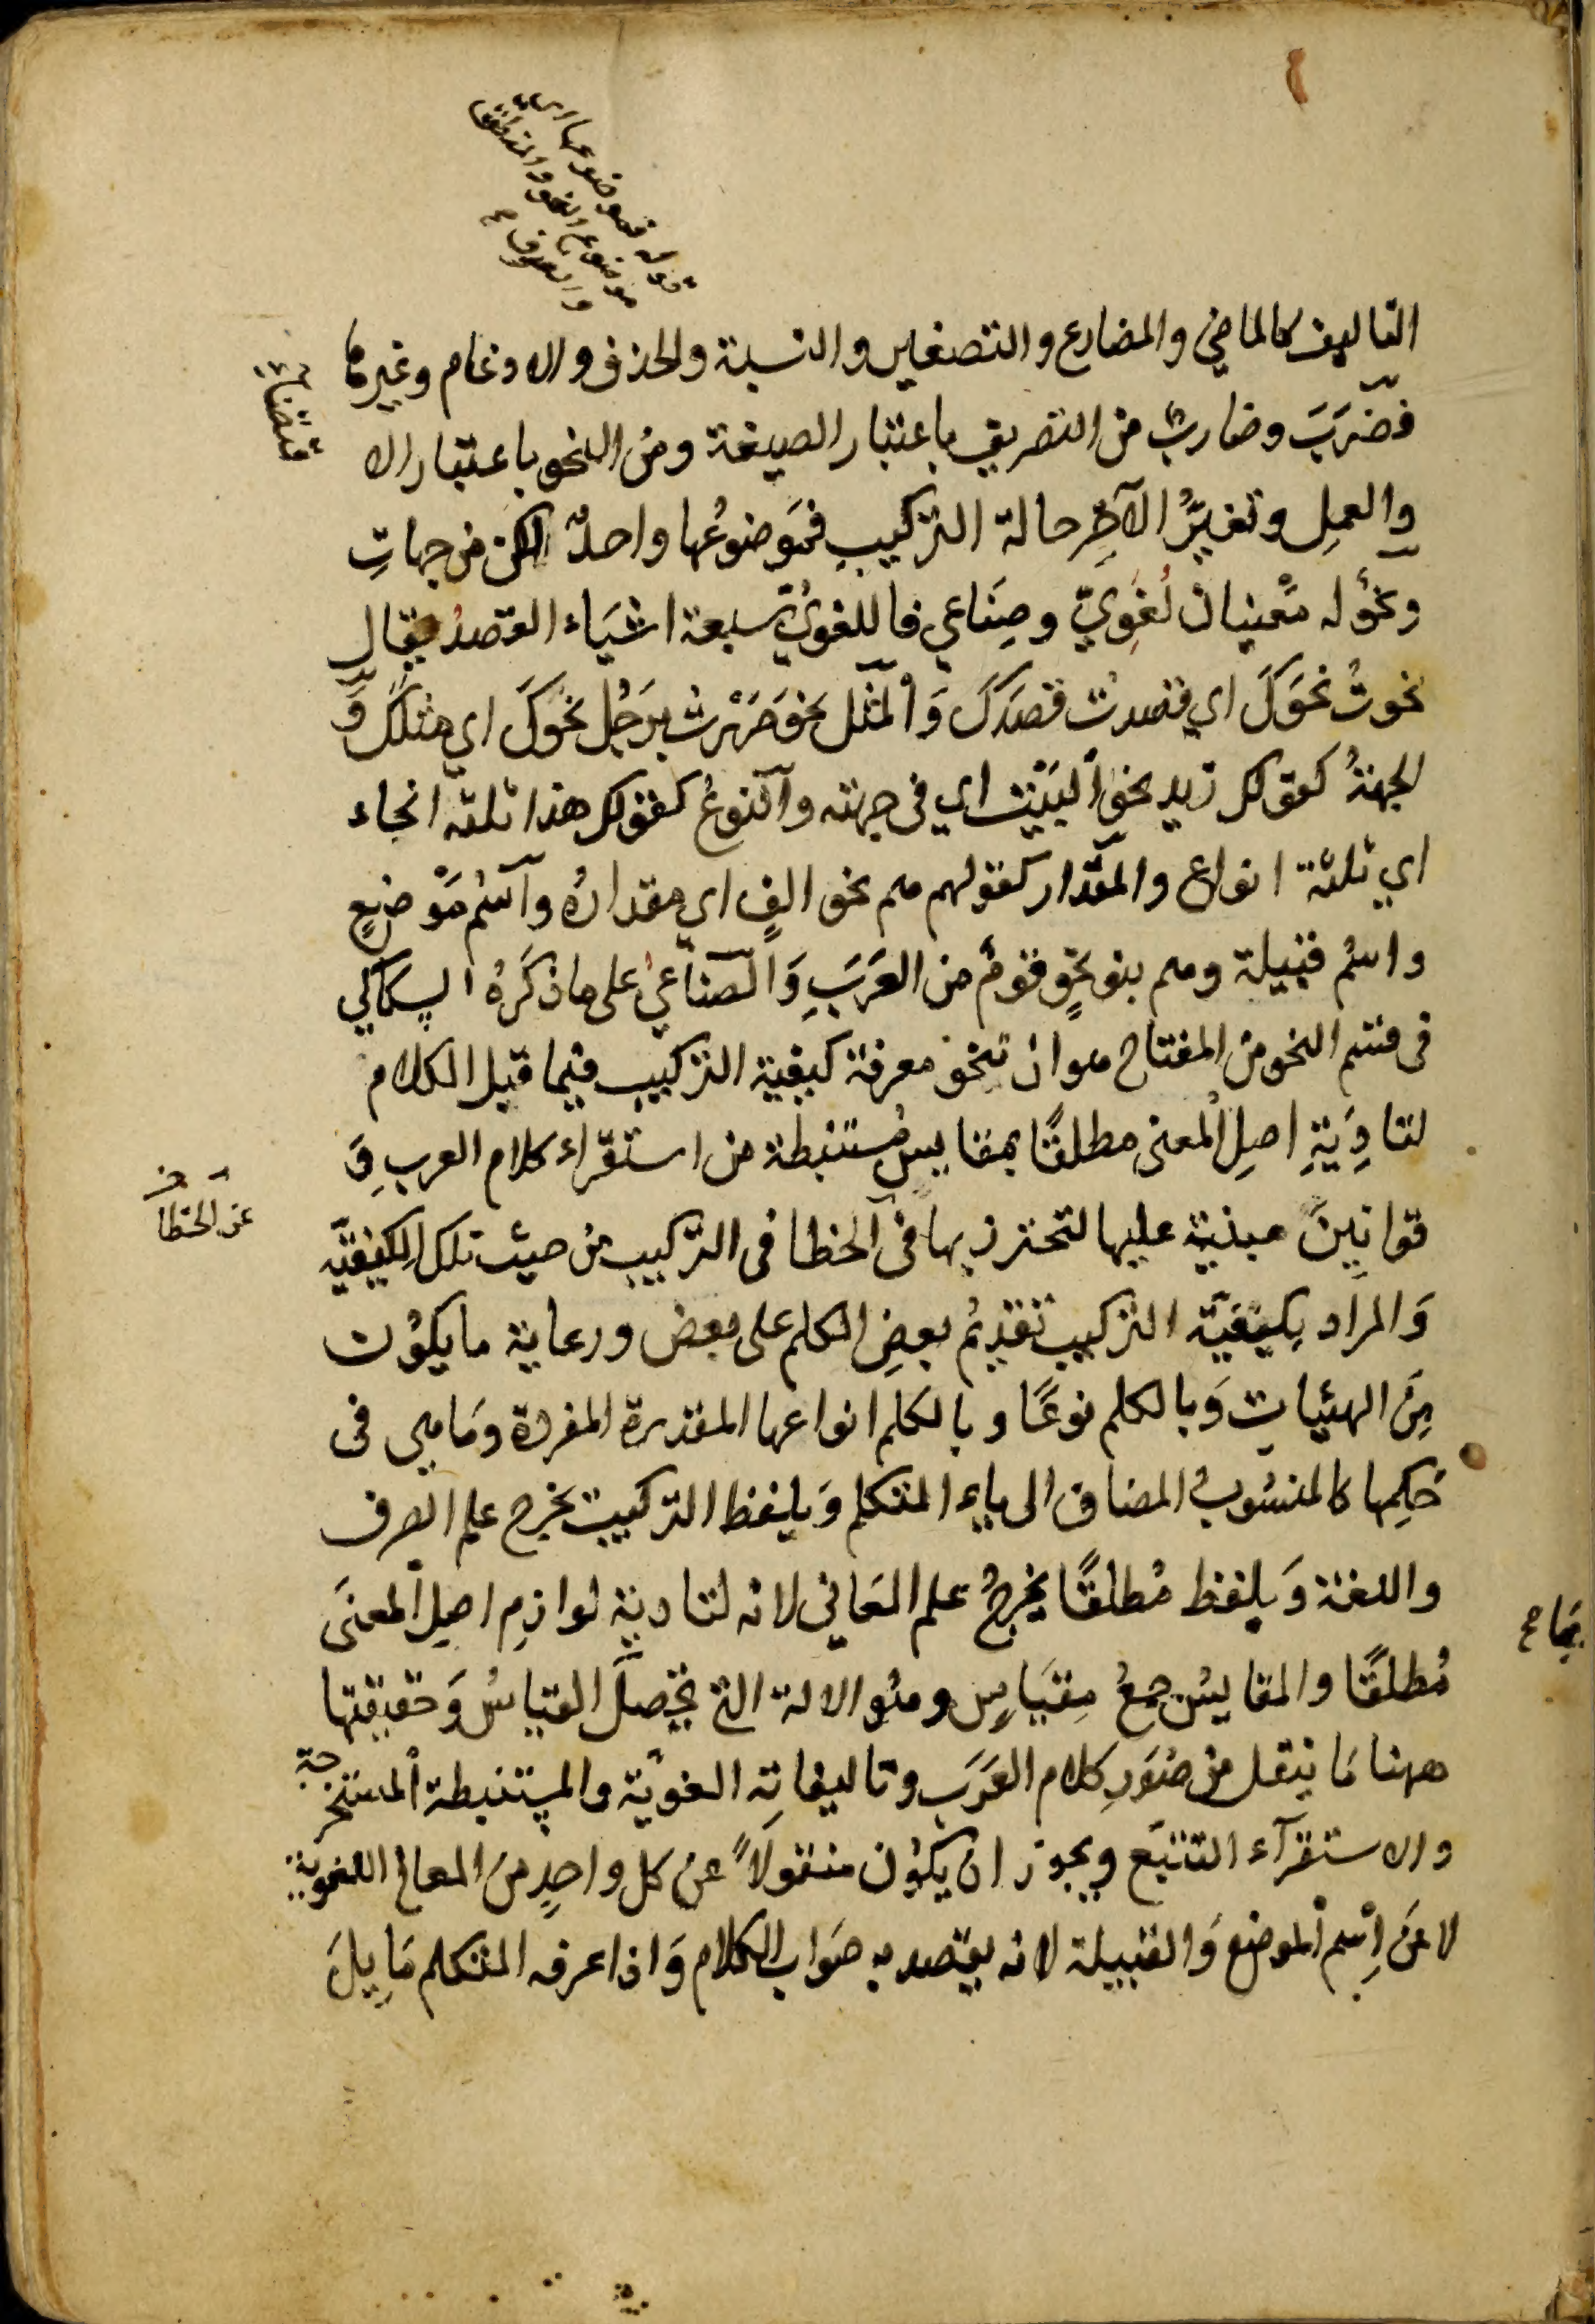 قوله فموضوعها اى
موضوع النحو والمنطق
والصرف
التاليف كالماضي والمضارع والتصغير والنسبة والحذف والادغام وغيرها
فضَرَبَ وضارب من التصريف باعتبار الصيغة ومن النحو باعتبار الا
قتضاء
والعمل وتغيّرُ الآخِرِ حالة التركيبِ فموضوعُها واحدٌ لكن من جهاتِ
ونحوٌ له معنيان لُغَويّ وصِنَاعي فاللغويُّ سبعة اشيَاء القصدُ يقال
نحوتُ نحوَكَ اي قصدت قصدَكَ وَالمثل نحو مَرَرْتُ بِرَجُلٍ نحوَكَ اي مثلَكَ وَ
الجهةُ كقولك زيد نحوَ البَيْت اي فى جهته والنوعُ كقولك هذا ثلثة انحاء
اي ثلثة انواع والمقدار كقولهم هم نحو الفٍ اي مقدارُهُ واسْمُ مَوْضعٍ
واسْمُ قبيلة وهم بنو نحوٍ قومٌ من العَرَبِ وَالصناعيُّ على ما ذكَرَهُ السكاكي
فى قسم النحو من المفتاح هو ان تنحو معرفة كيفية التركيب فيما قبل الكلام
لتادِيَةِ اصلِ المعنى مطلقًا بمقاييسَ مُستنبطة من استقراء كلام العرب وَ
قوانينَ مبنية عليها لتحترز بها فى الخطا فى التركيب من حيث تلك الكيفيّة
عن الخطأ
وَالمراد بكيفيّة التركيب تقديمُ بعضِ الكلم على بعض ورعاية ما يكون
مِنَ الهيئات وَبالكلم نوعًا وبالكلم انواعها المقدرة المفردة وَما هي فى
حُكمِها كالمنسُوبُ المضاف الى ياء المتكلم وَبلفظ التركيب يخرج علم الصرف
واللغة وَبلفظ مُطلقًا يخرجُ علم المعَاني لانه لتادية لوازم اصل المعنى
مُطلقًا والمقاييسُ جمعُ مِقيَاسٍ وهُو الالة التى يحصل القياسُ وَحقيقتها
بها ع
ههنا مَا ينقل من صُوَرِ كلام العَرَب وتاليفاتِه النحويّة والمستنبطة المستخرجة
والاستقرآء التتبّع ويجوز ان يكُون منقولاً عن كل واحدٍ من المعاني اللغوية
لا عَن اِسْم الموضع وَالقبيلة لانه يقصد به صَواب الكلام وَاذا عرفه المتكلم مَا يلَ